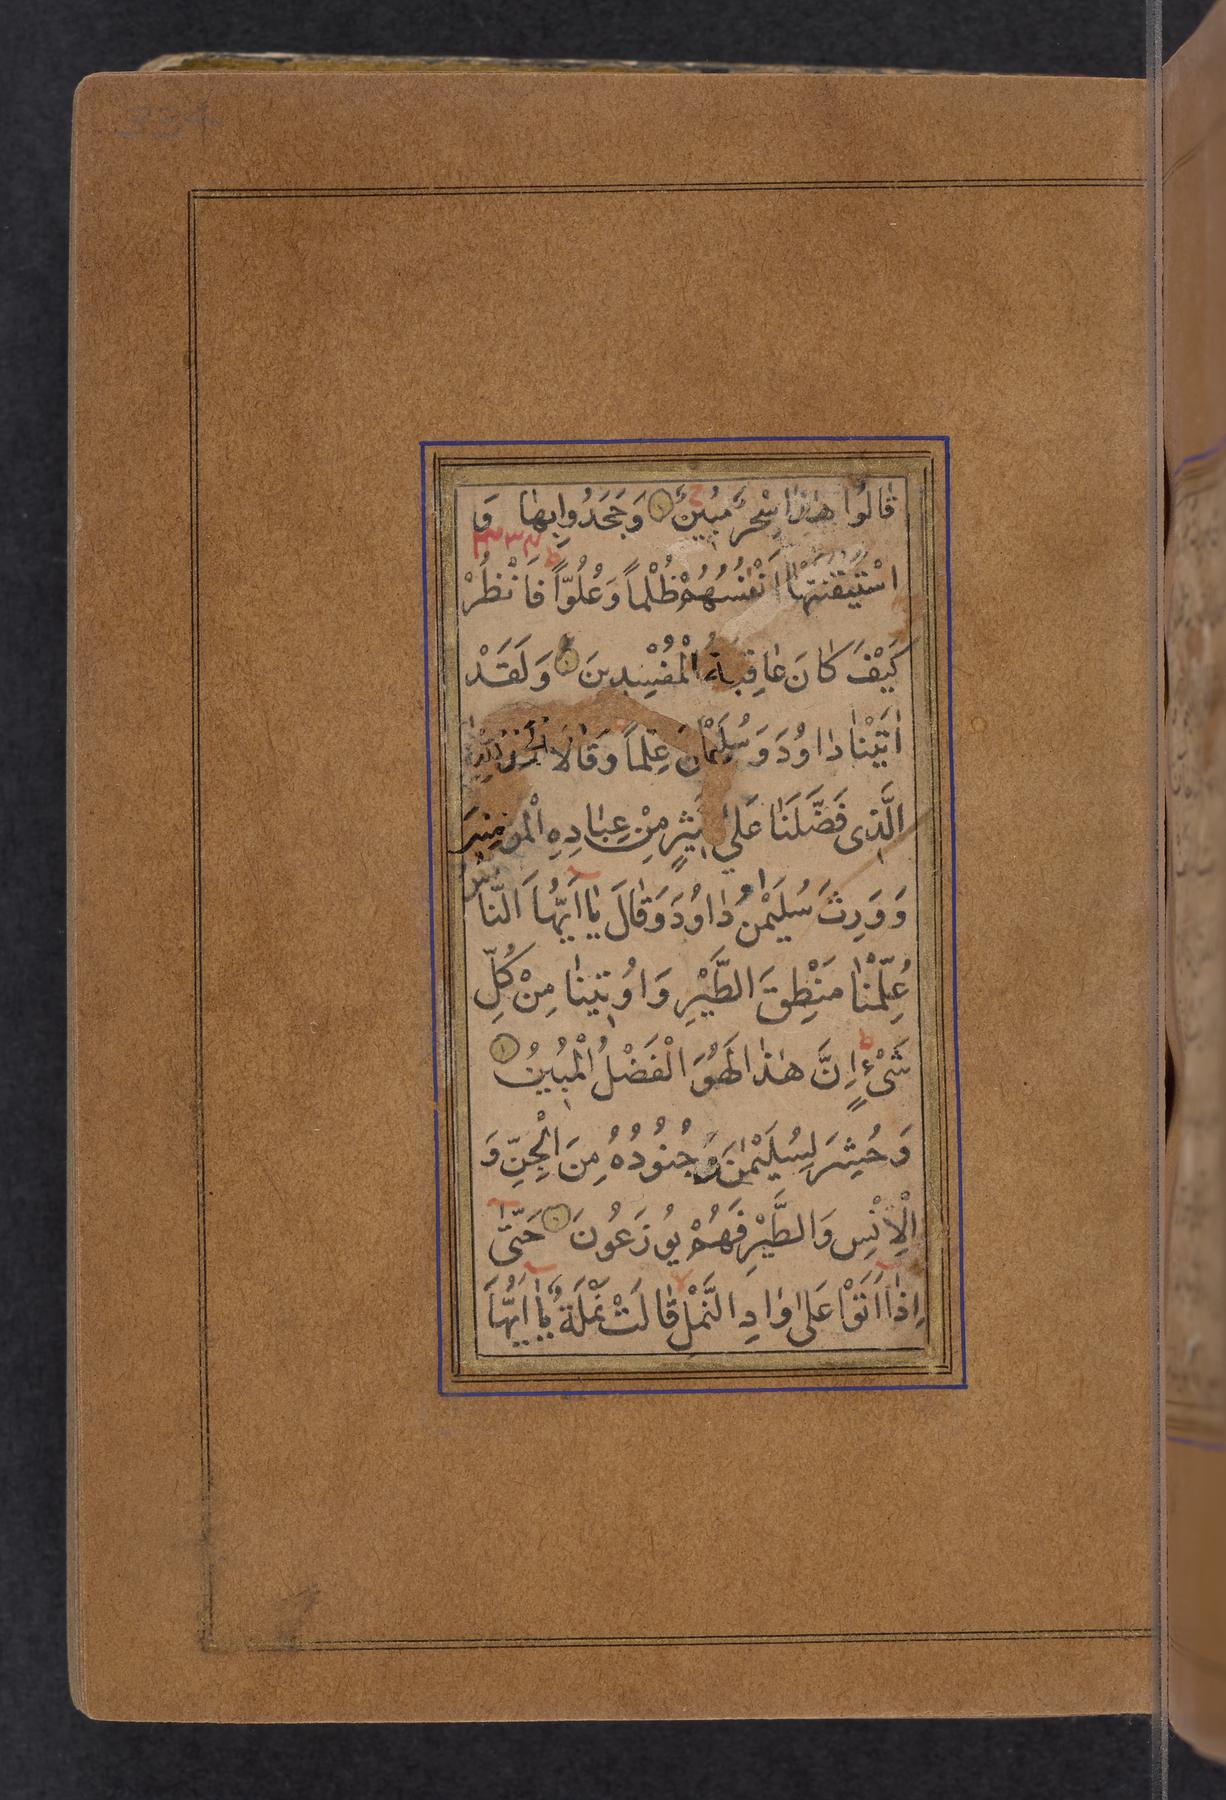 334
قَالُوا هٰذَا سِحْرٌ مُبِينٌ وَجَحَدُوا بِهَا وَ
٣٣٤
اسْتَيْقَنَتْهَا اَنْفُسُهُمْ ظُلْماً وَعُلُوّاً فَانْظُرْ
كَيْفَ كَانَ عَاقِبَةُ الْمُفْسِدِينَ وَلَقَدْ
اٰتَيْنَا دَاوُدَ وَسُلَيْمٰنَ عِلْماً وَقَالَا
الَّذِى فَضَّلَنَا عَلٰى كَثِيرٍ مِنْ عِبَادِهِ الْمُؤْمِنِينَ
وَوَرِثَ سُلَيْمٰنُ دَاوُدَ وَقَالَ يَا اَيُّهَا النَّاسُ
عُلِّمْنَا مَنْطِقَ الطَّيْرِ وَاُوتِينَا مِنْ كُلِّ
شَىْءٍ اِنَّ هٰذَا لَهُوَ الْفَضْلُ الْمُبِينُ
وَحُشِرَ لِسُلَيْمٰنَ جُنُودُهُ مِنَ الْجِنِّ وَ
الْاِنْسِ وَالطَّيْرِ فَهُمْ يُوزَعُونَ حَتّٰى
اِذَا اَتَوْا عَلٰى وَادِ النَّمْلِ قَالَتْ نَمْلَةٌ يَا اَيُّهَا